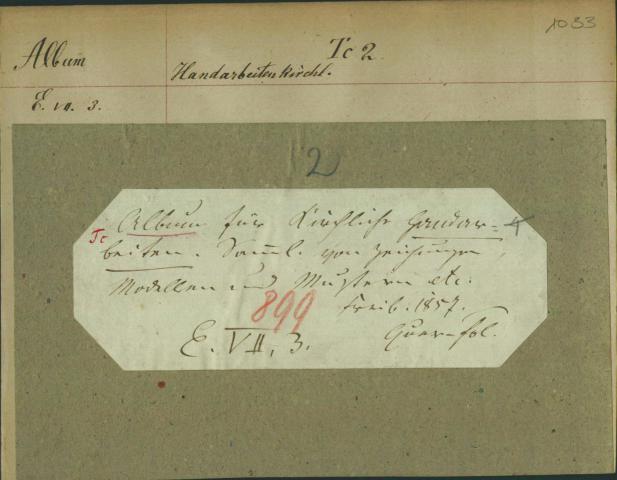 1033
Album Tc 2
Handarbeiten kirchl.
E. VII. 3.
2
Tc Album für kirchliche Handar=
beiten. Samml. von Zeichnungen,
Modellen und Mustern etc.
Freib. 1857.
899
E. VII, 3. Quer-Fol.